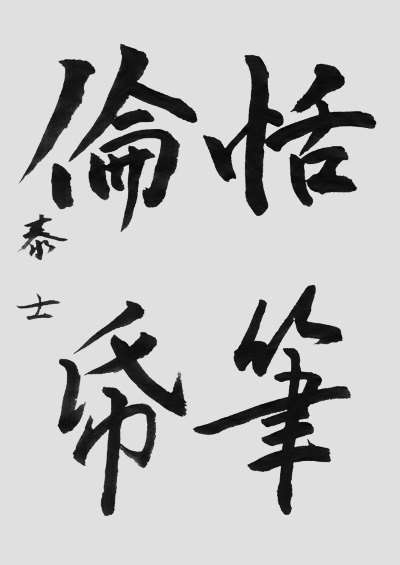 恬筆
倫帋
泰士